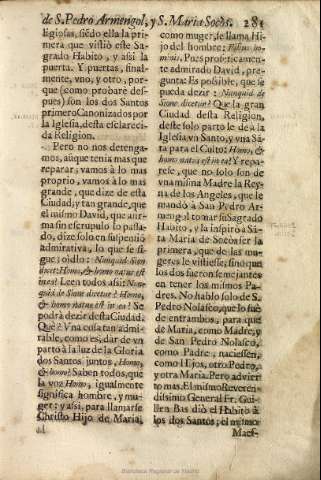 de S. Pedro Armengol, y S. Maria Socòs. 281
ligiosas, siẽdo ella la pri-
mera que vistiò este Sa-
grado Habito, y assi la
puerta. Y puertas, final-
mente, vno, y otro, por-
que (como probarè des-
pues) son los dos Santos
primero Canonizados por
la Iglesia, desta esclareci-
da Religion.
Pero no nos detenga-
mos, aũque tenia mas que
reparar, vamos à lo mas
proprio, vamos à lo mas
grande, que dize de esta
Ciudad, y tan grande, que
el mismo David, que afir-
ma sin escrupulo lo pas-
do, dize solo en suspensiõ
admirativa, lo que se si-
gue; oidlo: Nunquid Sion
dicet: Homo, & homo natus est
in ea? Leen todos assi: Nun-
quid de Sione dicetur? Homo,
& homo natus est in ea? Se
podrà dezir desta Ciudad,
Què? Vna cosa tan admi-
rable, como es, dar de vn
parto à la luz de la Gloria
dos Santos juntos, Homo,
& homo? Saben todos, que
la voz Homo, igualmente
significa hombre, y mu-
ger: y assi, para llamarse
Christo Hijo de Maria,
como muger, se llama Hi-
jo del hombre: Filius ho-
minis. Pues profeticamen-
te admirado David, pre-
gunta: Es posible, que se
pueda dezir: Nunquid de
Sione dicetur? Que la gran
Ciudad desta Religion,
deste solo parto le dè à la
Iglesia vn Santo, y vna Sã-
ta para el Culto: Homo, &
homo natus est in ea? Y repa-
rese, que no solo son de
vna misma Madre la Rey-
na de los Angeles, que le
mandò à San Pedro Ar-
mengol tomar su Sagrado
Habito, y la inspirò à Sã-
ta Maria de Socòs ser la
primera, que de las mu-
geres le vistiesse, sino que
los dos fueron semejantes
en tener los mismos Pa-
dres. No hablo solo de S.
Pedro Nolasco, que lo fue
de entrambos, para que
de Maria, como Madre, y
de San Pedro Nolasco,
como Padre, naciessen,
como Hijos, otro Pedro,
y otra Maria. Pero advier-
to mas. El mismo Reveren-
dissimo General Fr. Gui-
llen Bas diò el Habito à
los dos Santos; el mismo
Maes-
Biblioteca Regional de Madrid